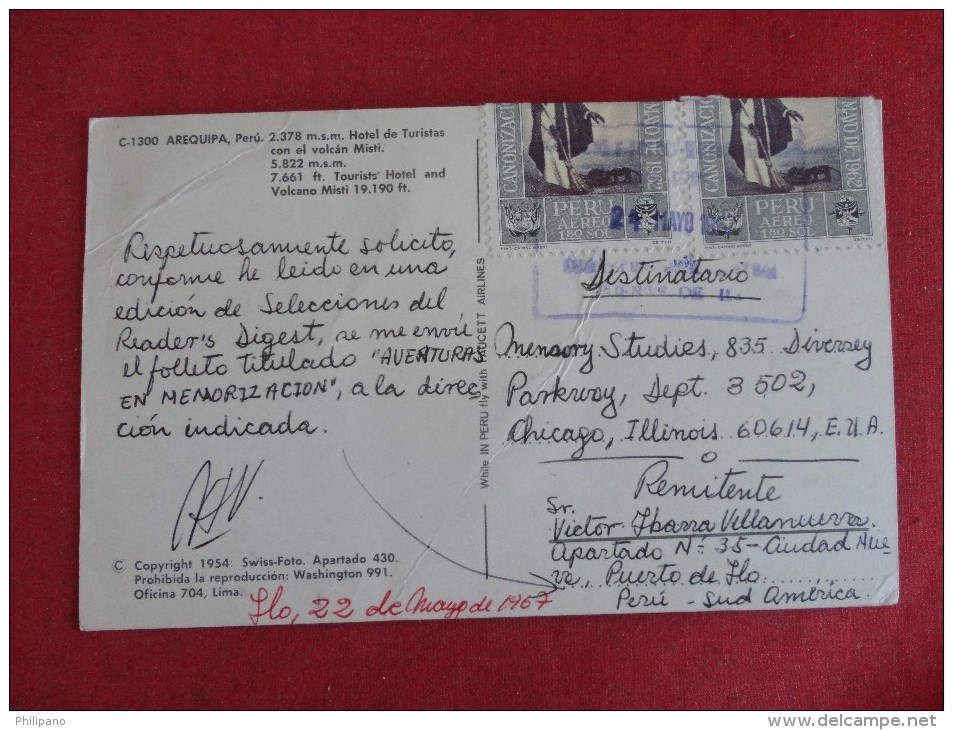 C-1300 AREQUIPA, Perú. 2.378 m.s.m. Hotel de Turistas
con el volcán Misti.
5.822 m.s.m.
7.661 ft. Tourists' Hotel and
Volcano Misti 19.190 ft.
Rispetuosamente solicito,
conforme he leido en una
edición de Selecciones del
Reader's Digest, se me envíe
el folleto titulado "AVENTURAS
EN MEMORIZACION", a la direc
ción indicada.
© Copyright 1954: Swiss-Foto. Apartado 430.
Prohibida la reproducción: Washington 991.
Oficina 704, Lima.
Ilo, 22 de Mayo de 1967
While IN PERU fly with FAUCETT AIRLINES
CANONIZACIO
MAYO DE 1962
PERU
AEREO
1.80 SOL
CANONIZACIO
MAYO DE 1962
PERU
AEREO
1.80 SOL
24 MAYO
Destinatario
Memory Studies, 835 Diversey
Parkway, Dept. 3502,
Chicago, Illinois 60614, E.U.A.
Remitente
Sr.
Victor Ibarra Villanueva.
Apartado Nº 35-Ciudad Nue
va, Puerto de Ilo
Perú - Sud América.
Philipano
http://www.delcampe.net